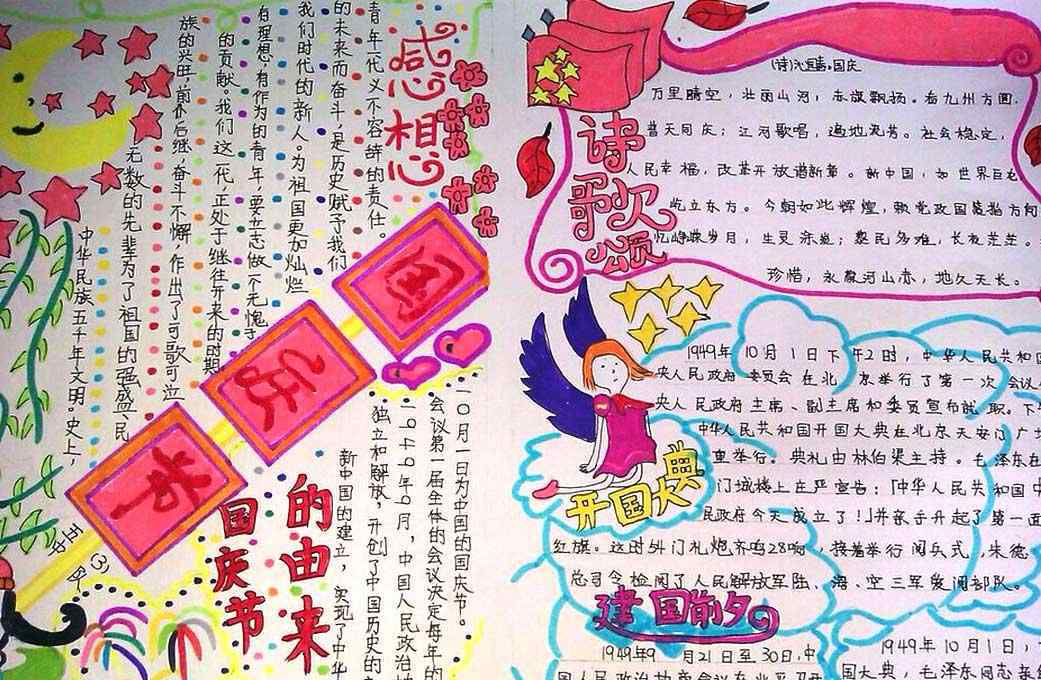 感想
中华民族五千年文明。史上,
无数的先辈为了祖国的强盛,民
族的兴旺,前仆后继,奋斗不懈,作出了可歌可泣
的贡献。我们这一代,正处于继往开来的时期
有理想,有作为的青年,要立志做一个无愧于
我们时代的新人。为祖国更加灿烂
的未来而奋斗,是历史赋予我们
青年一代义不容辞的责任。
国
庆
节
五(3)
中队
国庆节
的由来
新中国的建立,实现了中华
独立和解放,开创了中国历史的
一九四九年九月,中国人民政治
会议第一届全体的会议决定每年的
一〇月一日为中国的国庆节。
诗歌颂
国庆
万里晴空,壮丽山河,赤旗飘扬。看九州方圆.
普天同庆;江河歌唱,遍地流芳。社会稳定,
人民幸福,改革开放谱新章。新中国,如世界巨
屹立东方。今朝如此辉煌,赖党政国策指方向
忆峥嵘岁月,生灵涂炭;黎民多难,长夜茫茫。
珍惜,永葆河山赤,地久天长。
开国大典
1949年10月1日下午2时,中华人民共和
央人民政府委员会在北京举行了第一次会议
央人民政府主席、副主席和委员宣布就职。下
中华人民共和国开国大典在北京天安门广
重举行。典礼由林伯渠主持。毛泽东在
门城楼上庄严宣告:「中华人民共和国中
民政府今天成立了!」并亲手升起了第一面
红旗。这时外门礼炮齐鸣28响,接着举行阅兵式,朱德
总司令检阅了人民解放军陆、海、空三军受阅部队。
建国前夕
1949年9月21日至30日,中
国人民政治协商会议在北平
1949年10月1日,
国大典,毛泽东同志亲